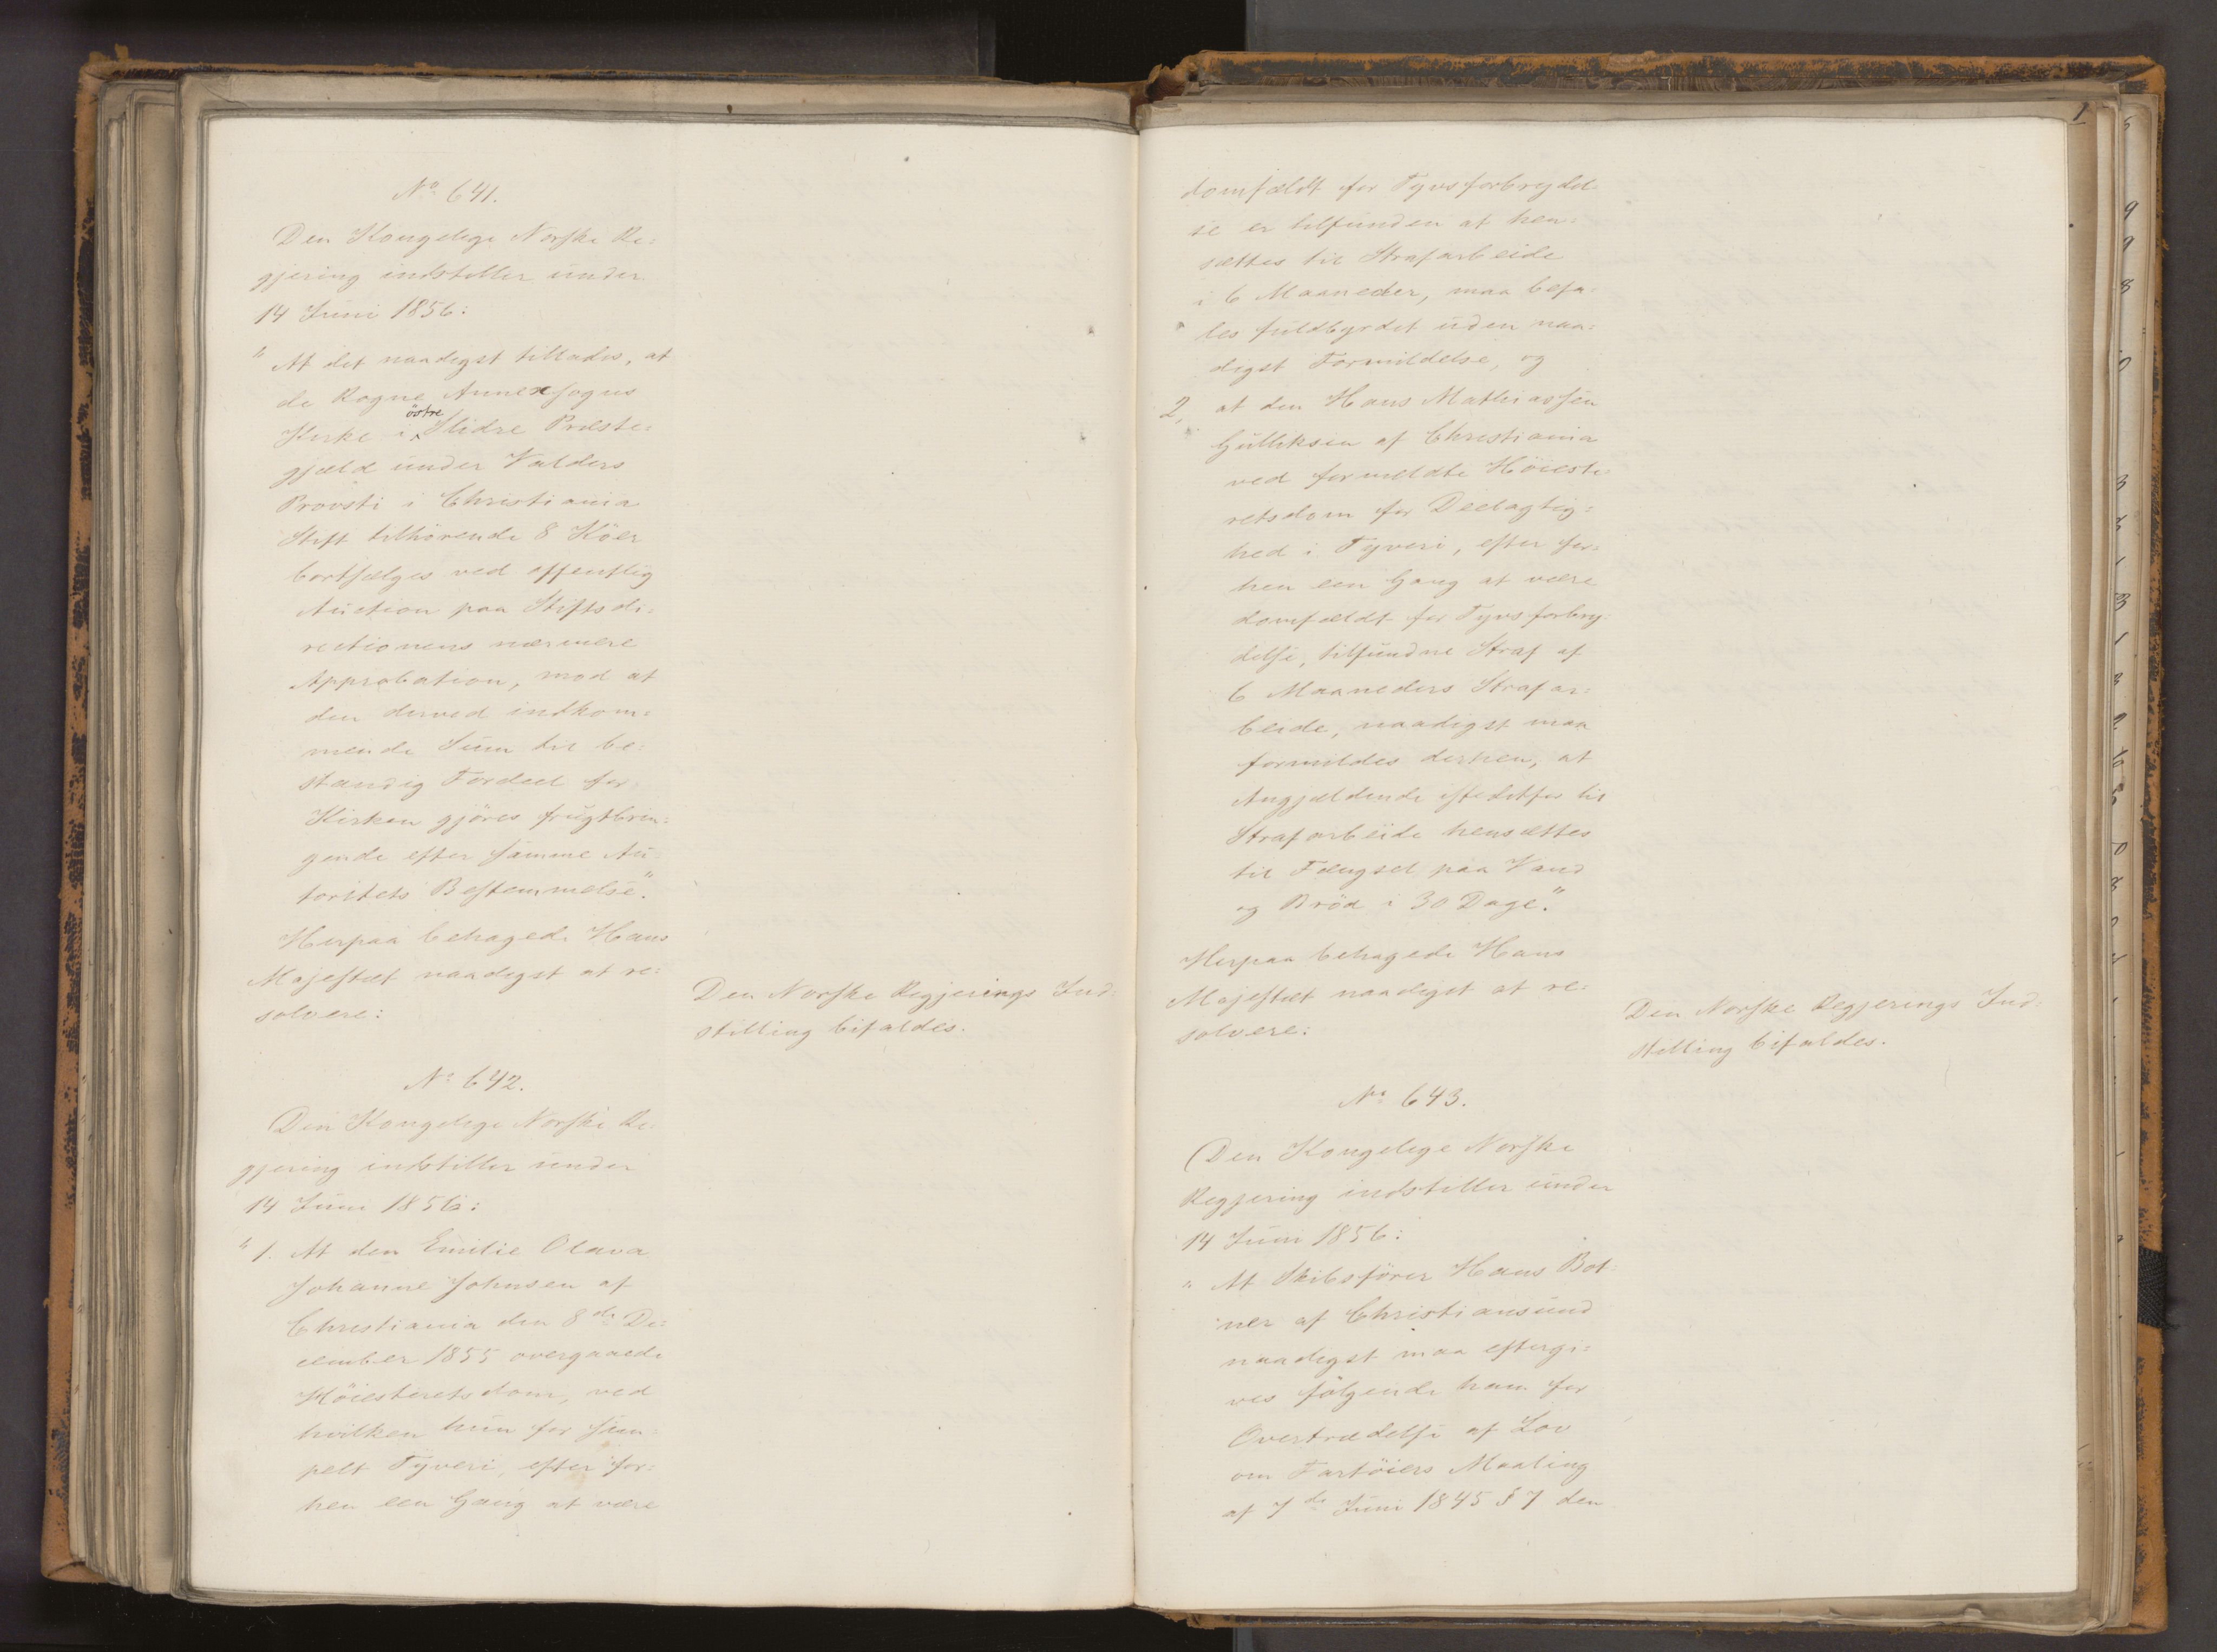 No 641.
Den Kongelige Norske Re-
gjering indstiller under
14 Juni 1856:
"At det naadigst tillades, at
de Rogne Annexsogns
Kirke i östre Slidre Præste-
gjæld under Valders
Provsti i Christiania
Stift tilhörende 8 Köer
bortsælges ved offentlig
Auction paa Stiftsdi-
rectionens nærmere
Approbation, mod at
den derved indkom-
mende Sum til be-
standig Fordeel for
Kirken gjöres frugtbrin-
gende efter samme Au-
toritets Bestemmelse."
Herpaa behagede Hans
Majestæt naadigst at re-
solvere:
Den Norske Regjerings Ind-
stilling bifaldes.
No 642.
Den Kongelige Norske Re-
gjering indstiller under
14 Juni 1856:
"1. At den Emilie Olava
Johanne Johnsen af
Christiania den 8de De-
cember 1855 overgaaede
Höiesteretsdom, ved
hvilken hun for sim-
pelt Tyveri, efter for-
hen een Gang at være
1
domfældt for Tyvsforbrydel-
se er tilfunden at hen-
sættes til Strafarbeide
i 6 Maaneder, maa befa-
les fuldbyrdet uden naa-
digst Formildelse, og
2, at den Hans Mathiassen
Gulliksen af Christiania
ved formeldte Höieste-
retsdom for Deelagtig-
hed i Tyveri, efter for-
hen een Gang at være
domfældt for Tyvsforbry-
delse, tilfundne Straf af
6 Maaneders Strafar-
beide, naadigst maa
formildes derhen, at
Angjældende istedetfor til
Strafarbeide hensættes
til Fængsel paa Vand
og Bröd i 30 Dage."
Herpaa behagede Hans
Majestæt naadigst at re-
solvere:
Den Norske Regjerings Ind-
stilling bifaldes.
No 643.
Den Kongelige Norske
Regjering indstiller under
14 Juni 1856:
"At Skibsförer Hans Bot-
ner af Christiansund
naadigst maa eftergi-
ves fölgende ham for
Overtrædelse af Lov
om Fartöiers Maaling
af 7de Juni 1845 § 7 den